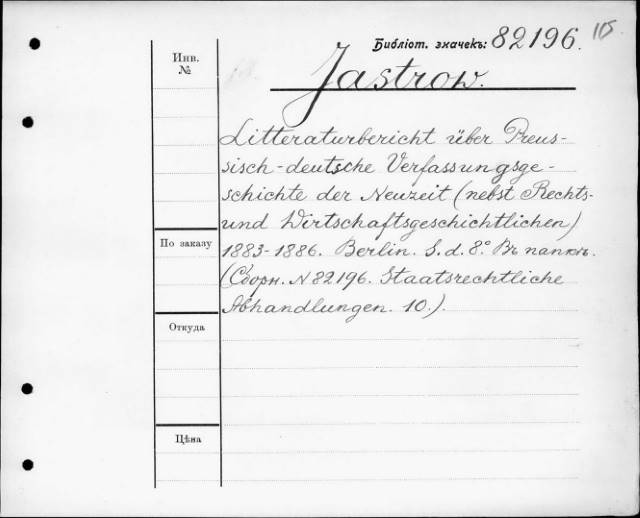 Библіот. значекъ: 82196. 115
Инв.
№
Jastrow.
Litteraturbericht über Preus-
sisch-deutsche Verfassungsge-
schichte der Neuzeit (nebst Rechts-
und Wirtschaftsgeschichtlichen)
По заказу
1883-1886. Berlin. S. d. 8° Въ папкѣ.
(Сборн. N 82196. Staatsrechtliche
Abhandlungen. 10.).
Откуда
Цѣна